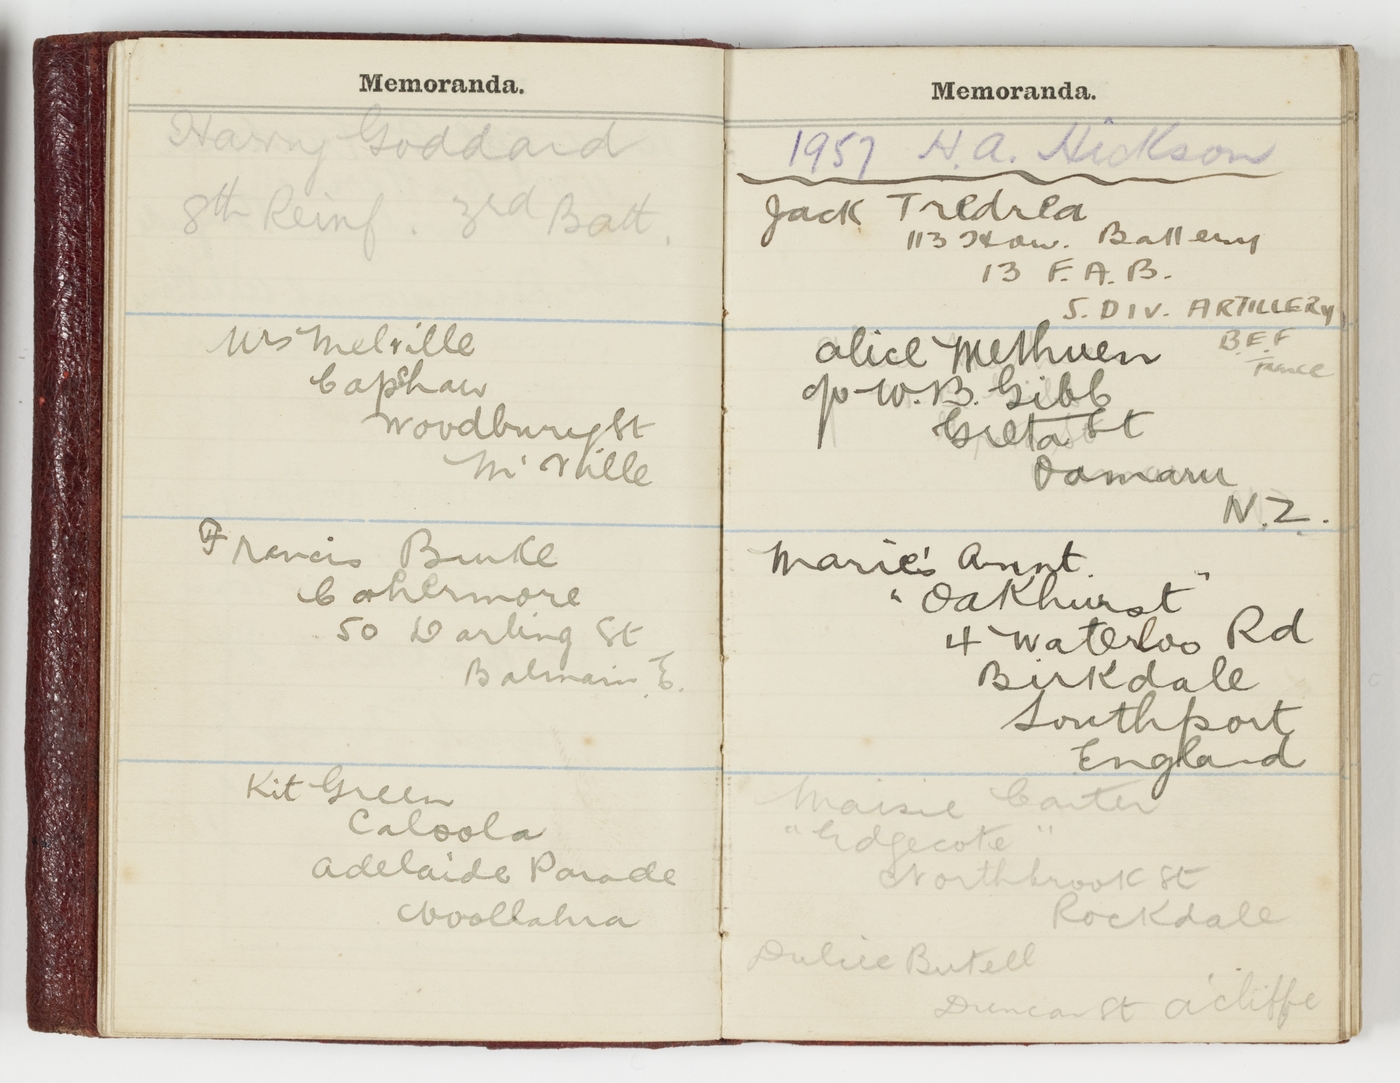 Memoranda.
Harry Goddard
8th Reinf. 3rd Batt.
Mrs Melville
Capshaw
Woodbury St
M'Ville
Francis Burke
Cahermore
50 Darling St
Balmain E.
Kit Green
Caloola
Adelaide Parade
Woollahra
Memoranda.
1957 H.A. Hickson
Jack Tredrea
113 How. Battery
13 F.A.B.
5. DIV. ARTILLERY
B.E.F
France
Alice Methuen
c/o W.B. Gibb
Greta St
Oamaru
N.Z.
Marie's Aunt.
"Oakhurst"
4 Waterloo Rd
Birkdale
Southport
England
Maisie Carter
"Edgecote"
Northbrook St
Rockdale
Dulcie Butell
Duncan St A'cliffe